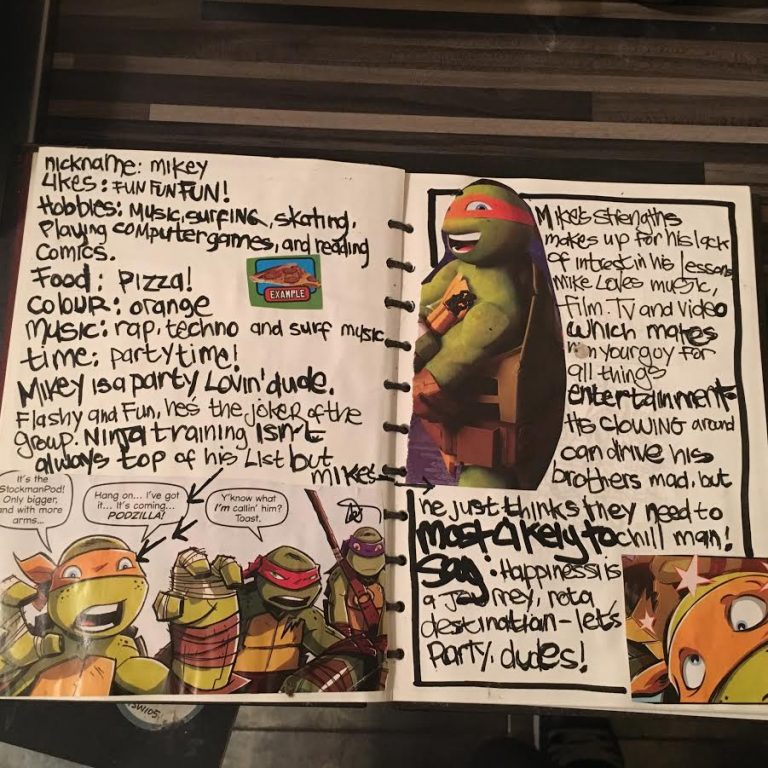 nickname: mikey
Likes: FUN FUN FUN!
Hobbies: Music, surfing, skating,
Playing computer games, and reading
Comics.
Food: Pizza!
EXAMPLE
colour: orange
music: rap, techno and surf music
time: partytime!
Mikey is a party Lovin' dude.
Flashy and Fun, he's the joker of the
group. Ninja training isn't
always top of his List but
mike's
It's the
StockmanPod!
Only bigger,
and with more
arms...
Hang on... I've got
it... It's coming...
PODZILLA!
Y'know what
I'm callin' him?
Toast.
Mike's strengths
makes up for his lack
of intrest in his lessons
Mike Loves music,
film. TV and video
which makes
him your guy for
all things
entertainment.
His clowing around
can drive his
brothers mad, but
he just thinks they need to
chill man!
most Likely to
Say. Happiness is
a journey, not a
destination - let's
Party, dudes!